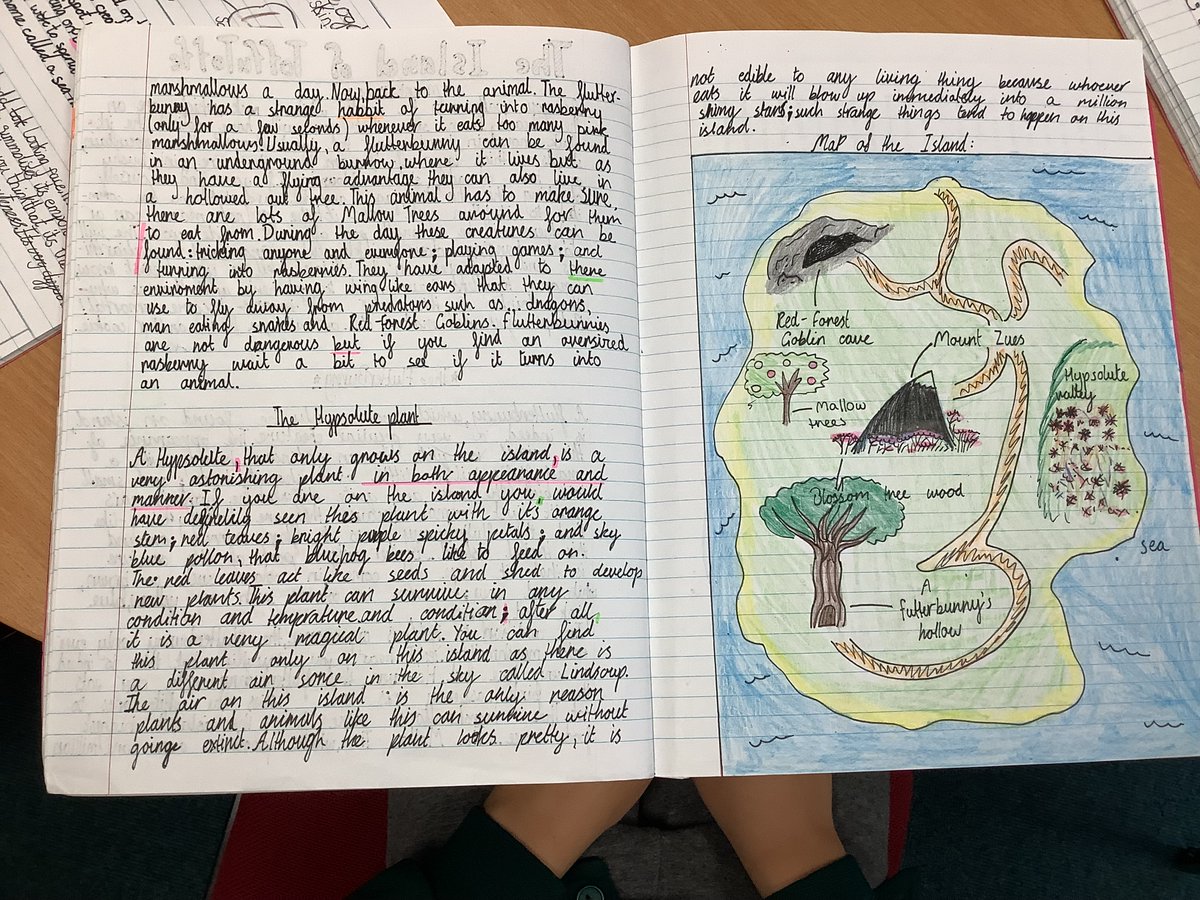 marshmallows a day. Now, back to the animal. The flutter-
bunny has a strange habbit of turning into rasberry
(only for a few seconds) whenever it eats too many pink
marshmallows! Usually, a flutterbunny can be found
in an underground burrow where it lives but as
they have a flying advantage they can also live in
a hollowed out tree. This animal has to make sure,
there are lots of Mallow Trees around for them
to eat from. During the day these creatures can be
found: tricking anyone and everyone; playing games; and
turning into rasberries. They have adapted to there
enviroment by having wing like ears that they can
use to fly away from predators such as: dragons,
man eating snakes and Red-Forest Goblins. Flutterbunnies
are not dangerous but if you find an oversized
rasberry wait a bit to see if it turns into
an animal.
The Hypsolute plant
A Hypsolute, that only grows on the island, is a
very astonishing plant in both appearance and
manner. If you are on the island you, would
have definelily seen this plant with it's orange
stem; red leaves; bright purple spicky petals; and sky
blue pollon, that bluehog bees like to feed on.
The red leaves act like seeds and shed to develop
new plants. This plant can survive in any
condition and temprature and condition; after all,
it is a very magical plant. You can find
this plant only on this island as there is
a different air sorce in the sky called Lindsoup.
The air on this island is the only reason
plants and animals like this can survive without
goinge extinct. Although the plant looks pretty, it is
not edible to any living thing because whoever
eats it will blow up immediately into a million
shiny stars; such strange things tend to happen on this
island.
Map of the Island:
Red-Forest
Goblin cave
Mount Zues
Hypsolute
valley
Mallow
trees
Blossom tree wood
sea
A
futterbunny's
hollow